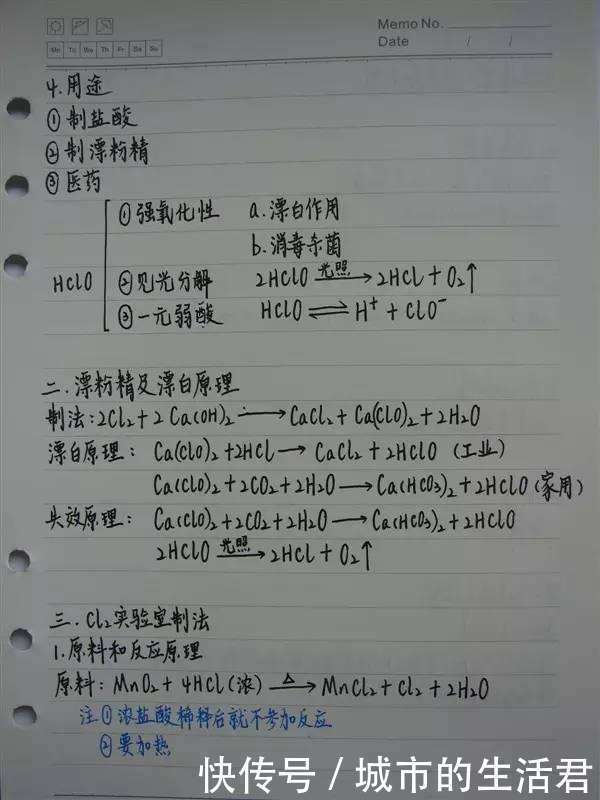 Memo No.
Date / /
Mo Tu We Th Fr Sa Su
4.用途
①制盐酸
②制漂粉精
③医药
①强氧化性 a.漂白作用
b.消毒杀菌
HClO ②见光分解 2HClO 光照→ 2HCl + O₂↑
③一元弱酸 HClO ⇌ H⁺ + ClO⁻
二.漂粉精及漂白原理
制法:2Cl₂+2Ca(OH)₂ → CaCl₂+Ca(ClO)₂+2H₂O
漂白原理: Ca(ClO)₂+2HCl → CaCl₂+2HClO (工业)
Ca(ClO)₂+2CO₂+2H₂O → Ca(HCO₃)₂+2HClO(家用)
失效原理: Ca(ClO)₂+2CO₂+2H₂O → Ca(HCO₃)₂+2HClO
2HClO 光照→ 2HCl + O₂↑
三.Cl₂实验室制法
1.原料和反应原理
原料:MnO₂+4HCl(浓) △→ MnCl₂+Cl₂+2H₂O
注①浓盐酸稀释后就不参加反应
②要加热
快传号/城市的生活君